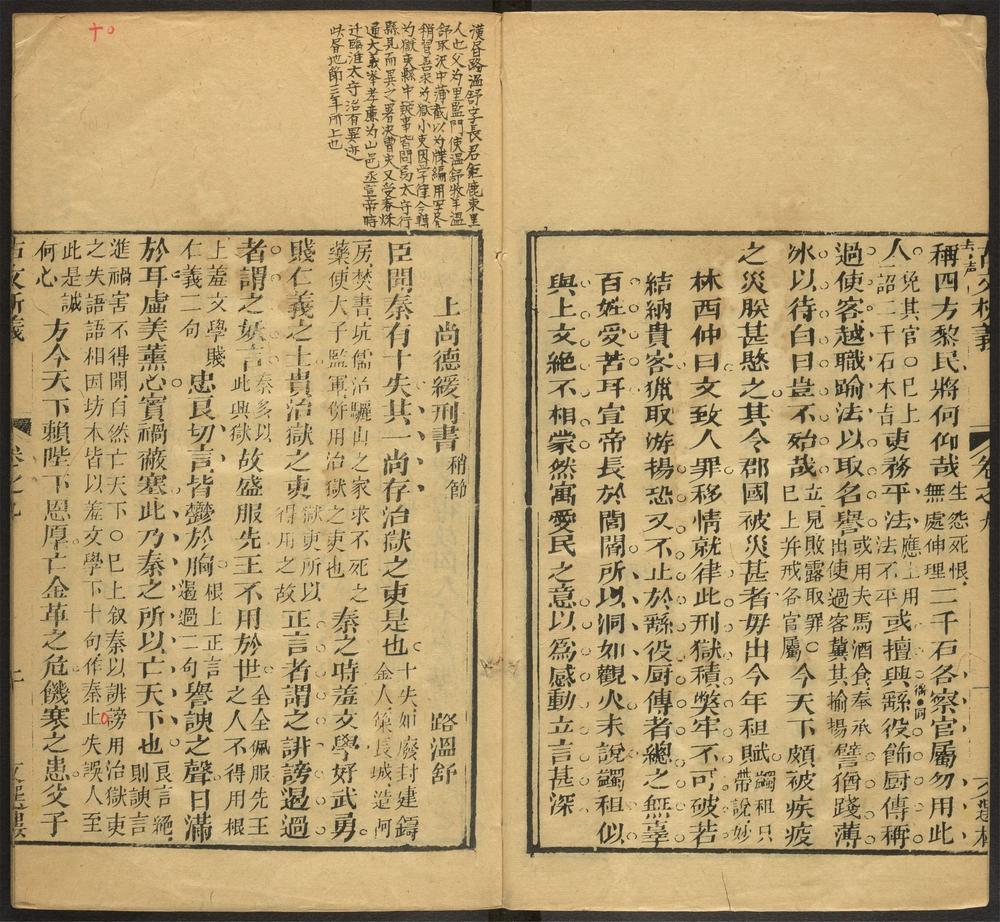 古文析義 卷之九 一 文選樓
稱四方黎民將何仰哉生怨死恨無處伸理二千石各察官屬勿用此
人免其官○已上一詔二千石吏務平法應上用法不平或擅興繇役飾厨傳稱
過使客越職踰法以取名譽或用夫馬酒食奉承出使過客冀其揄揚譬猶踐薄
冰以待白日豈不殆哉立見敗露取罪○已上并戒各官屬今天下頗被疾疫
之災朕甚愍之其令郡國被災甚者毋出今年租賦蠲租只帶說妙
林西仲曰文致人罪移情就律此刑獄積獘牢不可破若
結納貴客獵取游揚恐又不止於繇役厨傳者總之無辜
百姓受苦耳宣帝長於閭閻所以洞如觀火末說蠲租似
與上文絕不相蒙然寓愛民之意以爲感動立言甚深
漢書路溫舒字長君鉅鹿東里
人也父为里監門使溫舒牧羊溫
舒取泽中蒲截以为牒編用写书
稍習善求为獄小吏因学律令轉
为獄吏縣中疑事皆問焉太守行
縣見而異之署决曹史又受春秋
通大義举孝廉为山邑丞宣帝時
迁臨淮太守治有異迹
此書地節三年所上也
十
上尚德緩刑書稍節 路溫舒
臣聞秦有十失其一尚存治獄之吏是也十失如廢封建鑄金人築長城造阿
房焚書坑儒治驪山之冢求不死之藥使大子監軍併用治獄之吏也秦之時羞文學好武勇
賤仁義之士貴治獄之吏獄吏所以得用之故正言者謂之誹謗遏過
者謂之妖言秦多以此興獄故盛服先王不用於世全全佩服先王之人不得用根
上羞文學賤仁義二句忠良切言皆鬱於胸根上正言遏過二句譽諛之聲日滿
於耳虛美薰心實禍蔽塞此乃秦之所以亡天下也良言絕則諛言
進禍害不得聞自然亡天下○已上叙秦以誹謗用治獄吏之失語語相因坊本皆以羞文學下十句作秦止失誤人至
此是誠何心方今天下賴陛下恩厚亡金革之危饑寒之患父子
古文析義 卷之九 上 文選樓